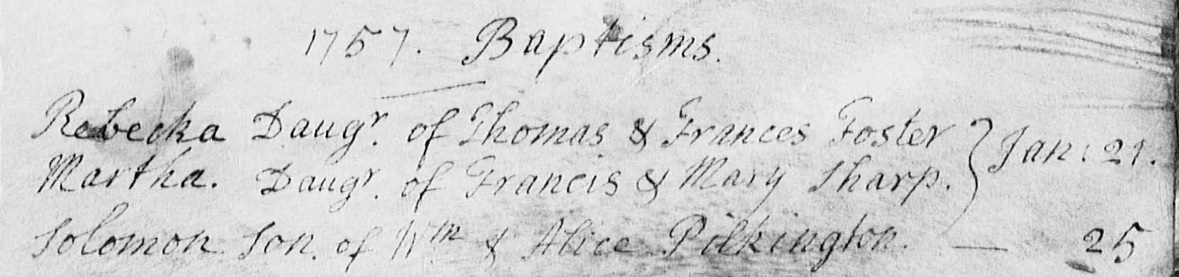 1757. Baptisms.
Rebecka Daugr. of Thomas & Frances Foster } Jan: 21.
Martha. Daugr. of Francis & Mary Sharp.
Solomon Son. of Wm & Alice Pilkington. — 25